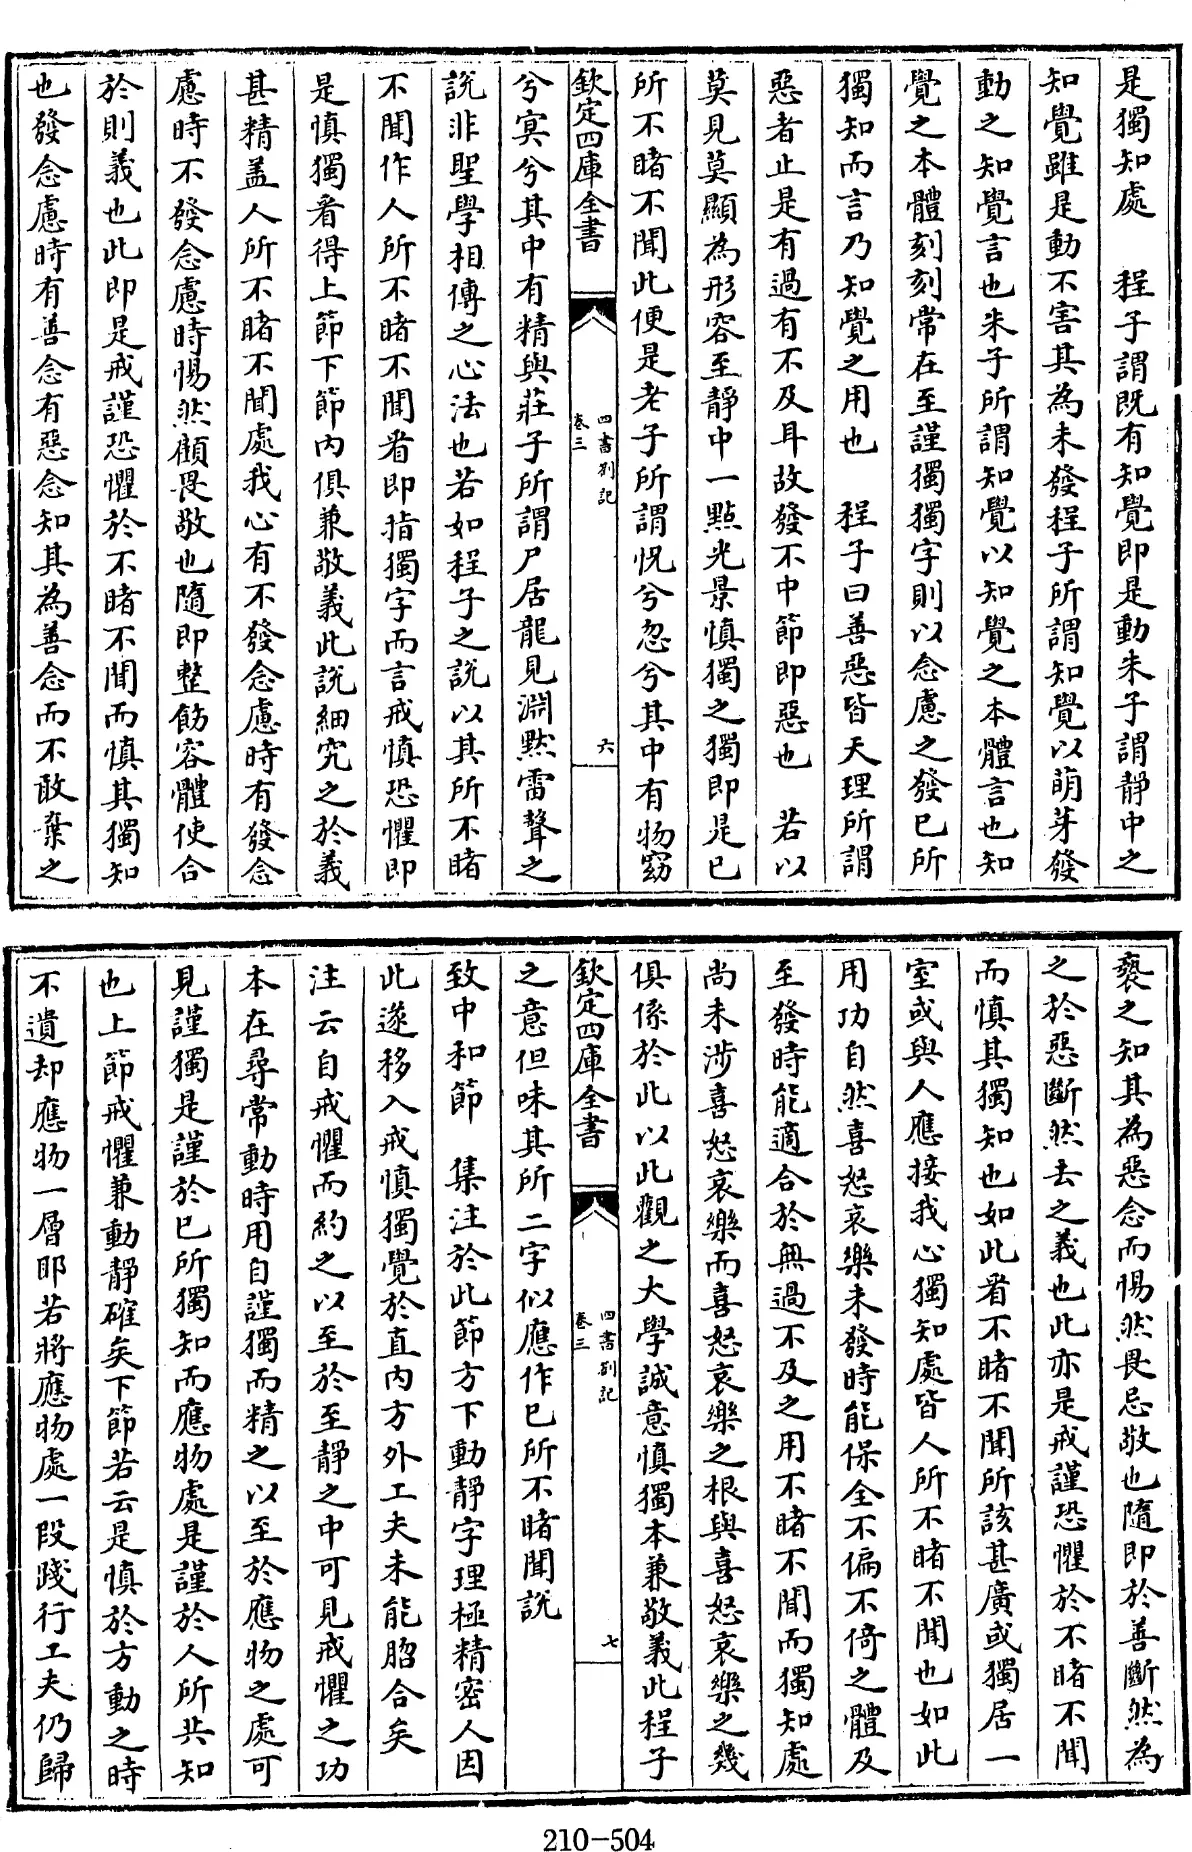 是獨知處　程子謂既有知覺即是動朱子謂靜中之
知覺雖是動不害其為未發程子所謂知覺以萌芽發
動之知覺言也朱子所謂知覺以知覺之本體言也知
覺之本體刻刻常在至謹獨獨字則以念慮之發已所
獨知而言乃知覺之用也　程子曰善惡皆天理所謂
惡者止是有過有不及耳故發不中節即惡也　若以
莫見莫顯為形容至靜中一點光景慎獨之獨即是已
所不睹不聞此便是老子所謂恍兮忽兮其中有物窈
欽定四庫全書
四書劄記
卷三
六
兮冥兮其中有精與莊子所謂尸居龍見淵默雷聲之
說非聖學相傳之心法也若如程子之說以其所不睹
不聞作人所不睹不聞看即指獨字而言戒慎恐懼即
是慎獨看得上節下節内俱兼敬義此說細究之於義
甚精盖人所不睹不聞處我心有不發念慮時有發念
慮時不發念慮時惕然顧畏敬也隨即整飭容體使合
於則義也此即是戒謹恐懼於不睹不聞而慎其獨知
也發念慮時有善念有惡念知其為善念而不敢棄之
褻之知其為惡念而惕然畏忌敬也隨即於善斷然為
之於惡斷然去之義也此亦是戒謹恐懼於不睹不聞
而慎其獨知也如此看不睹不聞所該甚廣或獨居一
室或與人應接我心獨知處皆人所不睹不聞也如此
用功自然喜怒哀樂未發時能保全不偏不倚之體及
至發時能適合於無過不及之用不睹不聞而獨知處
尚未涉喜怒哀樂而喜怒哀樂之根與喜怒哀樂之幾
俱係於此以此觀之大學誠意慎獨本兼敬義此程子
欽定四庫全書
四書劄記
卷三
七
之意但味其所二字似應作已所不睹聞說
致中和節　集注於此節方下動靜字理極精密人因
此遂移入戒慎獨覺於直内方外工夫未能脗合矣
注云自戒懼而約之以至於至靜之中可見戒懼之功
本在尋常動時用自謹獨而精之以至於應物之處可
見謹獨是謹於已所獨知而應物處是謹於人所共知
也上節戒懼兼動靜確矣下節若云是慎於方動之時
不遺却應物一層耶若將應物處一段踐行工夫仍歸
210-504